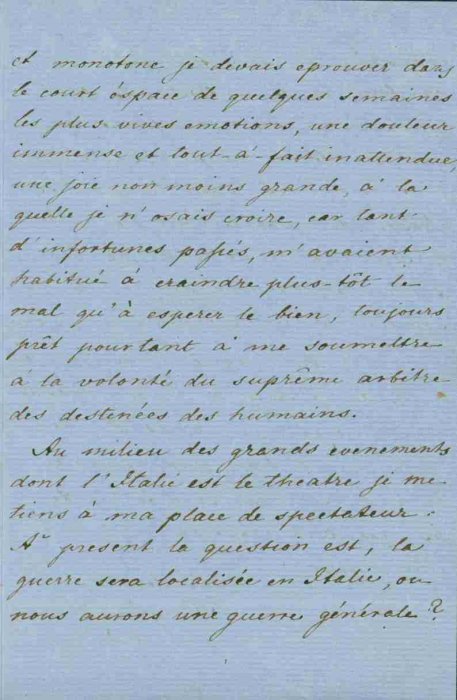 et monotone je devais eprouver dans
le court éspace de quelques semaines
les plus vives emotions, une douleur
immense et tout-à-fait inattendue,
une joie non moins grande, à la
quelle je n'osais croire, car tant
d'infortunes passés, m'avaient
habitué à craindre plus-tôt le
mal qu'à esperer le bien, toujours
prêt pourtant à me soumettre
à la volonté du suprême arbitre
des destenées des humains.
Au milieu des grands evenements
dont l'Italie est le theatre je me
tiens à ma place de spectateur.
A present la question est, la
guerre sera localisée en Italie, ou
nous aurons une guerre générale?